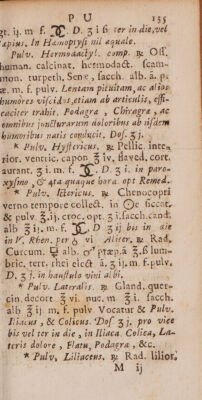 P U 155
gt. ij. m. f. D. ʒ i ß ter in die, vel
sæpius. In Hæmoptysi nil æquale.
Pulv. Hermodactyl. comp. ℞ Oss.
human. calcinat. hermodact. scam-
mon. turpeth. Senæ, sacch. alb. ā. p.
æ. m. f. pulv. Lentam pituitam, ac alios
humores viscidos, etiam ab articulis, effi-
caciter trahit. Podagræ, Chiragræ, ac
omnibus juncturarum doloribus ab iisdem
humoribus natis conducit. Dos. ʒ j.
* Pulv. Hystericus. ℞ Pellic. inte-
rior. ventric. capon. ℥ iv. flaved. cort.
aurant. ʒ i. m. f. D. ʒ i. in paro-
xysmo, & 4ta quaque hora opt. Remed.
* Pulv. Ictericus. ℞ Chenocopri
verno tempore collect. in ☉le siccat.
& pulv. ℥ ij. croc. opt. ʒ i. sacch. cand.
alb ℥ ij. m. f. D. ʒ ij bis in die
in V. Rhen. per 6 vi Aliter. ℞ Rad.
Curcum. ℥ alb. præp. ā ℥. ß lum-
bric. terr. rhei elect ā. ʒ ij. m. f. pulv.
D. ʒ j. in haustulo vini albi.
* Pulv. Lateralis. ℞ Gland. quer-
cin. decort. ℥ vi. nuc. m ℥ i. sacch.
alb ℥ ij. m. f. pulv Vocatur & Pulv.
Iliacus, & Colicus. Dos. ʒ j. pro vice
bis vel ter in die, in Iliaca. Colica, La-
teris dolore, Flatu, Podagra, &c.
* Pulv. Liliaceus. ℞ Rad. lilior.
M ij